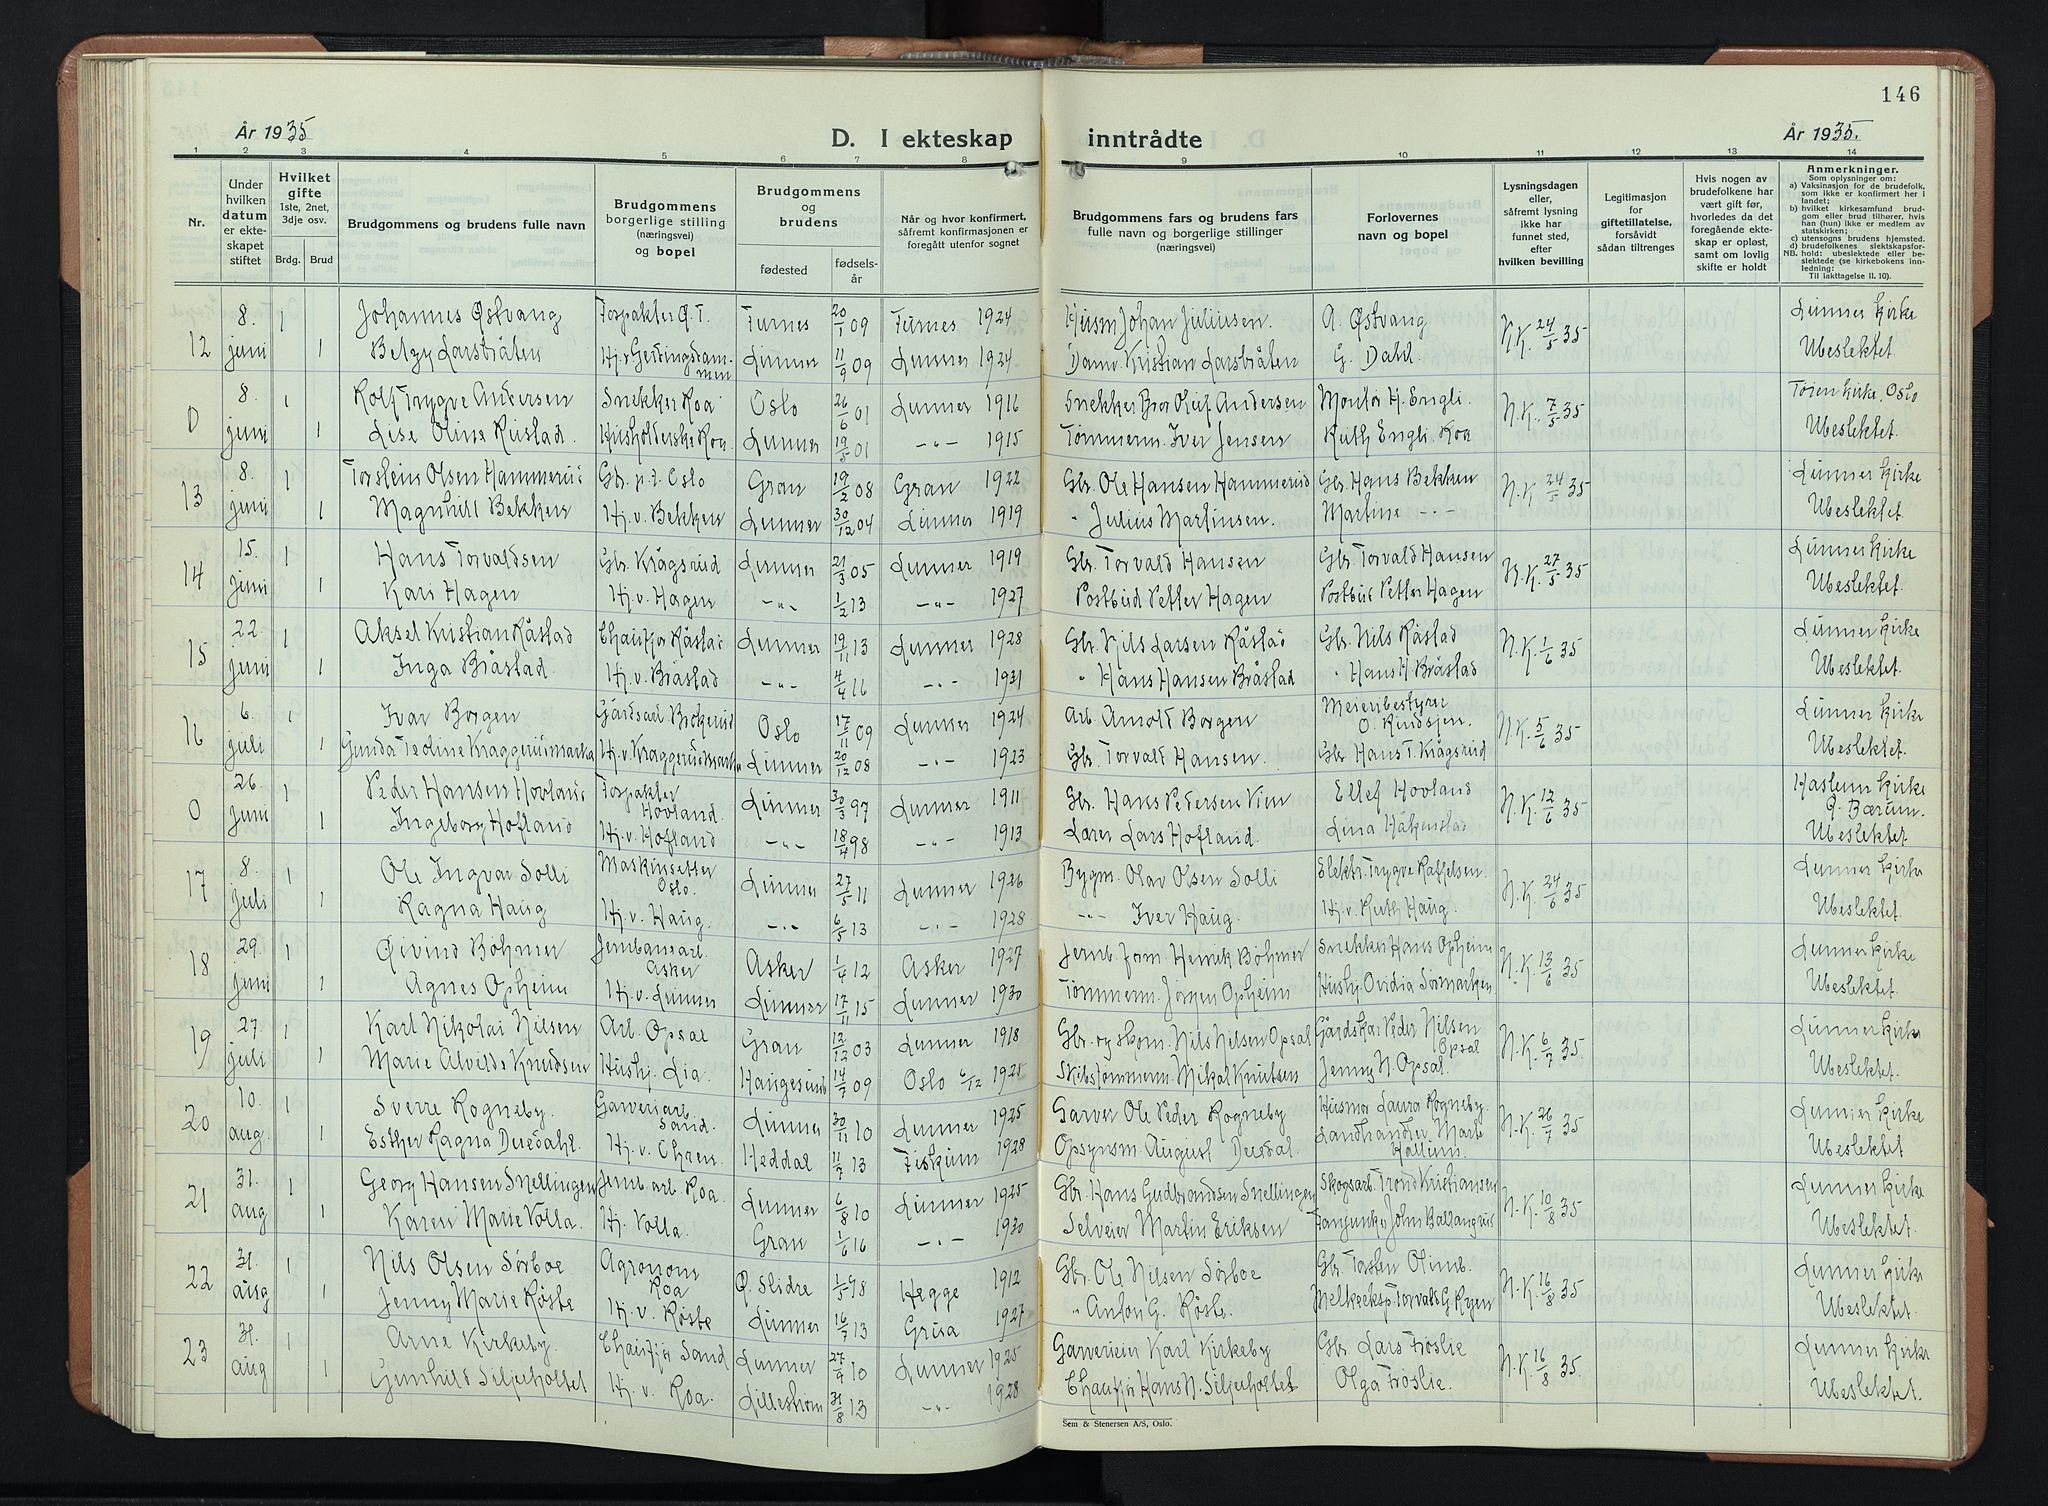 146
År 1935 D. I ekteskap inntrådte År 1935.
1 2 3 4 5 6 7 8 9 10 11 12 13 14
Nr.
Under hvilken datum er ekteskapet stiftet
Hvilket gifte 1ste, 2net, 3dje osv.
Brdg. Brud
Brudgommens og brudens fulle navn
Brudgommens borgerlige stilling (næringsvei) og bopel
Brudgommens og brudens
fødested fødselsår
Når og hvor konfirmert, såfremt konfirmasjonen er foregått utenfor sognet
Brudgommens fars og brudens fars fulle navn og borgerlige stillinger (næringsvei)
Forlovernes navn og bopel
Lysningsdagen eller, såfremt lysning ikke har funnet sted, efter hvilken bevilling
Legitimasjon for giftetillatelse, forsåvidt sådan tiltrenges
Hvis nogen av brudefolkene har vært gift før, hvorledes da det foregående ekteskap er opløst, samt om lovlig skifte er holdt
Anmerkninger.
Som oplysninger om:
a) Vaksinasjon for de brudefolk, som ikke er konfirmert her i landet;
b) hvilket kirkesamfund brudgom eller brud tilhører, hvis han (hun) ikke er medlem av statskirken;
c) utensogns brudens hjemsted.
d) brudefolkenes slektskapsforhold: ubeslektede eller beslektede (se kirkebokens innledning:
NB. Til iakttagelse II. 10).
12 8. juni 1 Johannes Østvang Torpakter Ø.T. Furnes 20/1 09 Furnes 1924 Husm Johan Juliussen. A. Østvang N.K. 24/5 35 Lunner kirke
1 Betzy Larsbråten Hj. v Gjerdingsdammen Lunner 11/9 09 Lunner 1924 Damv. Kristian Larsbråten G. Dahl Ubeslektet
0 8. juni 1 Rolf Trygve Andersen Snekker Roa Oslo 26/6 01 Lunner 1916 Snekker Bror Oluf Andersen Montør H. Engli N.K. 7/5 35 Tøien kirke, Oslo
1 Lise Oline Rustad. Husholderske Roa. Lunner 19/5 01 -"- 1915 Tømmerm. Iver Jensen Ruth Engli Roa Ubeslektet.
13 8. juni 1 Torstein Olsen Hammerud Gbr. p.t. Oslo Gran 19/2 08 Gran 1922 Gbr. Ole Hansen Hammerud Gbr. Hans Bekken N.K. 24/5 35 Lunner kirke
1 Magnhild Bekken Hj. v. Bekken Lunner 30/12 04 Lunner 1919 " Julius Martinsen. Martine -"- Ubeslektet.
14 15. juni 1 Hans Torvaldsen Gbr. Krågsrud Lunner 21/3 05 Lunner 1919 Gbr. Torvald Hansen Gbr. Torvald Hansen N.K. 27/5 35 Lunner kirke
1 Kari Hagen Hj. v. Hagen -"- 1/2 13 -"- 1927 Postbud Petter Hagen Postbud Petter Hagen Ubeslektet.
15 22. juni 1 Aksel Kristian Råstad Chauffør Råstad Lunner 19/11 13 Lunner 1928 Gbr. Nils Larsen Råstad Gbr. Nils Råstad N.K. 1/6 35 Lunner kirke
1 Inga Bråstad. Hj. v. Bråstad -"- 4/4 16 -"- 1931 " Hans Hansen Bråstad " Hans H. Bråstad Ubeslektet.
16 6. juli 1 Ivar Borgen Gårdsarb Oslo 17/11 09 Lunner 1924 Arb. Arnold Borgen Meieribestyrer O. Rundsjen. N.K. 5/6 35 Lunner kirke
1 Gunda Teoline Kraggerudmarka Hj. v. Kraggerudmarka Lunner 20/12 08 -"- 1923 Gbr. Torvald Hansen. Gbr Hans T. Krågsrud Ubeslektet.
0 26 juni 1 Peder Hansen Hovland Torpakter Hovland. Lunner 30/3 97 Lunner 1911 Gbr. Hans Pedersen Vien Ellef Hovland N.K. 12/6 35 Haslum kirke Ø. Bærum.
1 Ingeborg Hofland Hj. v. Hofland -"- 18/4 98 -"- 1913 Lærer Lars Hofland. Lina Håkenstad Ubeslektet
17 8. juli 1 Ole Ingvar Solli Maskinsetter Oslo. Lunner 27/5 11 Lunner 1926 Bygm. Olav Olsen Solli Elektr. Trygve Raffelsen. N.K. 24/6 35 Lunner kirke
1 Ragna Haug Hj. v. Haug. -"- 6/5 13 -"- 1928 -"- Iver Haug. Hj. v. Ruth Haug. Ubeslektet.
18 29. juni 1 Øivind Böhmer Jernbanearb. Asker Asker 1/4 12 Asker 1927 Jernb. form. Henrik Böhmer Snekker Hans Opheim N.K. 13/6 35 Lunner kirke
1 Agnes Opheim Hj. v. Lunner Lunner 17/11 15 Lunner 1930 Tømmerm. Jørgen Opheim Hushj. Ovidia Sørmarken Ubeslektet.
19 27 juli 1 Karl Nikolai Nilsen Arb. Opsal Gran 12/12 03 Lunner 1918 Gbr. og skom. Nils Nilsen Opsal Gårdskar Peder Nilsen Opsal N.K. 6/7 35 Lunner kirke
1 Marie Alvelds Knudsen Hushj. Lia. Haugesund 14/7 09 Oslo 6/12 1925 Skibstømmerm. Mikal Knutsen Jenny N. Opsal. Ubeslektet.
20 10. aug. 1 Sverre Rogneby. Garveriarb Sand. Lunner 30/11 10 Lunner 1925 Garver Ole Peder Rogneby Husmor Laura Rogneby. N.K. 26/7 35 Lunner kirke
1 Esther Ragna Duesdahl Hj. v. Ohren. Heddal 11/7 13 Fiskum 1928 Opsynsm. August Duesdal. Landhandler Ubeslektet
21 31. aug 1 Georg Hansen Snellingen Jernb. arb. Roa. Lunner 6/8 10 Lunner 1925 Gbr. Hans Gudbrandsen Snellingen Skogsarb. Trond Kristiansen N.K. 10/8 35 Lunner kirke
1 Karen Marie Volla. Hj. Volla. Gran 1/6 16 -"- 1930 Selveier Martin Eriksen John Ballangrud Ubeslektet.
22 31 aug 1 Nils Olsen Sørboe Agronom Roa Ø. Slidre 1/5 98 Hegge 1912 Gbr. Ole Nilsen Sørboe Gbr. Torsten Olimb. N.K. 16/8 35 Lunner kirke
1 Jenny Marie Røste Hj. v. Røste Lunner 16/7 13 Grua 1927 " Anton G. Røste. Torvald G. Ryen Ubeslektet.
23 31. aug 1 Arne Kirkeby. Chauffør Sand Lunner 27/9 10 Lunner 1925 Garverieier Karl Kirkeby Gbr. Lars Frøslie N.K. 16/8 35. Lunner kirke
1 Gunhild Siljeholtet Hj. v. Roa. Lillestrøm 31/8 13 -"- 1928 Chauffør Hans N. Siljeholtet Olga Frøslie. Ubeslektet.
Sem & Stenersen A/S, Oslo.